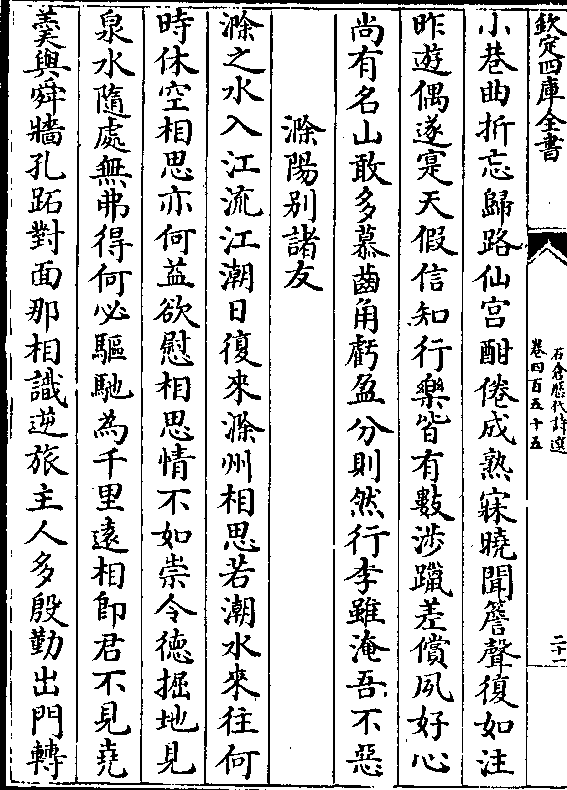 欽定四庫全書
石倉歷代詩選
卷四百五十五
二十一
小巷曲折忘歸路仙宫酣倦成熟寐曉聞簷聲復如注
昨遊偶遂寔天假信知行樂皆有數涉躐差償夙好心
尚有名山敢多慕齒角虧盈分則然行李雖淹吾不惡
滁陽别諸友
滁之水入江流江潮日復來滁州相思若潮水來往何
時休空相思亦何益欲慰相思情不如崇令德掘地見
泉水隨處無弗得何必驅馳為千里遠相即君不見堯
羮與舜牆孔跖對面那相識逆旅主人多殷勤出門轉